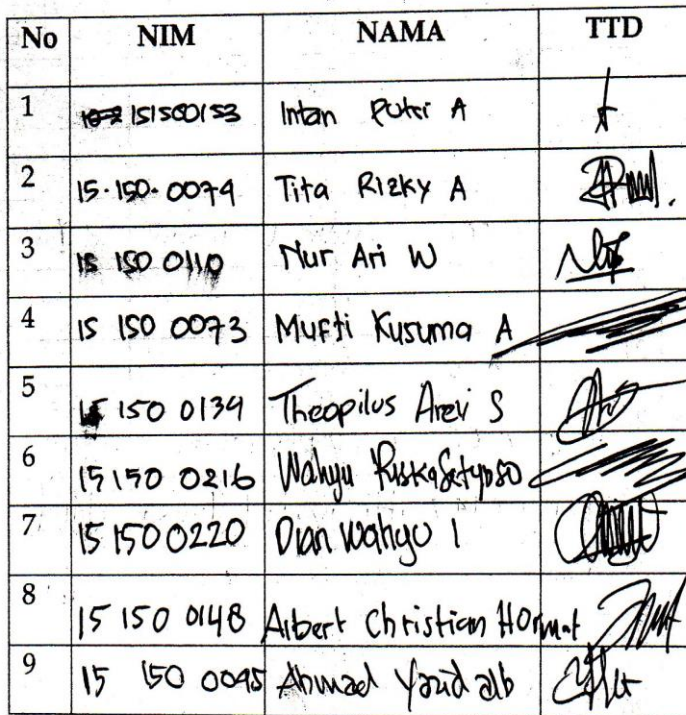 No NIM NAMA TTD
1 151500153 Intan Putri A
2 15.150.0074 Tita Rizky A
3 15 150 0110 Nur Ari W
4 15 150 0073 Mufti Kusuma A
5 15 150 0134 Theopilus Arevi S
6 15150 0216 Wahyu
7 15 150 0220 Dian Wahyu I
8 15 150 0148 Albert Christian Hormat
9 15 150 0095 Ahmad Yazid alb